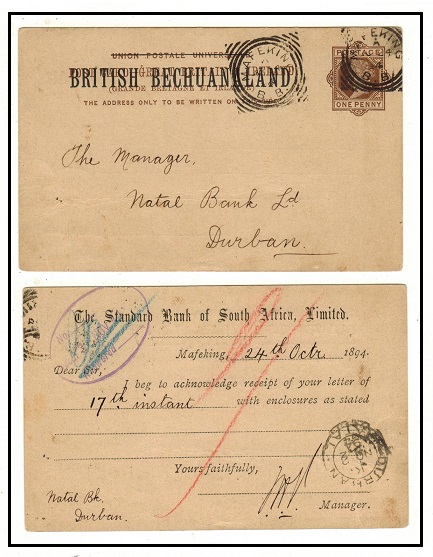 UNION POSTALE UNIVERSELLE
BRITISH BECHUANALAND
(GRANDE BRETAGNE ET IRLANDE)
THE ADDRESS ONLY TO BE WRITTEN ON
MAFEKING
B.B.
POSTAGE
MAFEKING
B.B.
ONE PENNY
The Manager,
Natal Bank Ld
Durban.
The Standard Bank of South Africa, Limited.
Mafeking, 24th Octr 1894.
Dear Sir,
I beg to acknowledge receipt of your letter of
17th instant with enclosures as stated
Yours faithfully,
Manager.
Natal Bk.
Durban.
DURBAN
NATAL